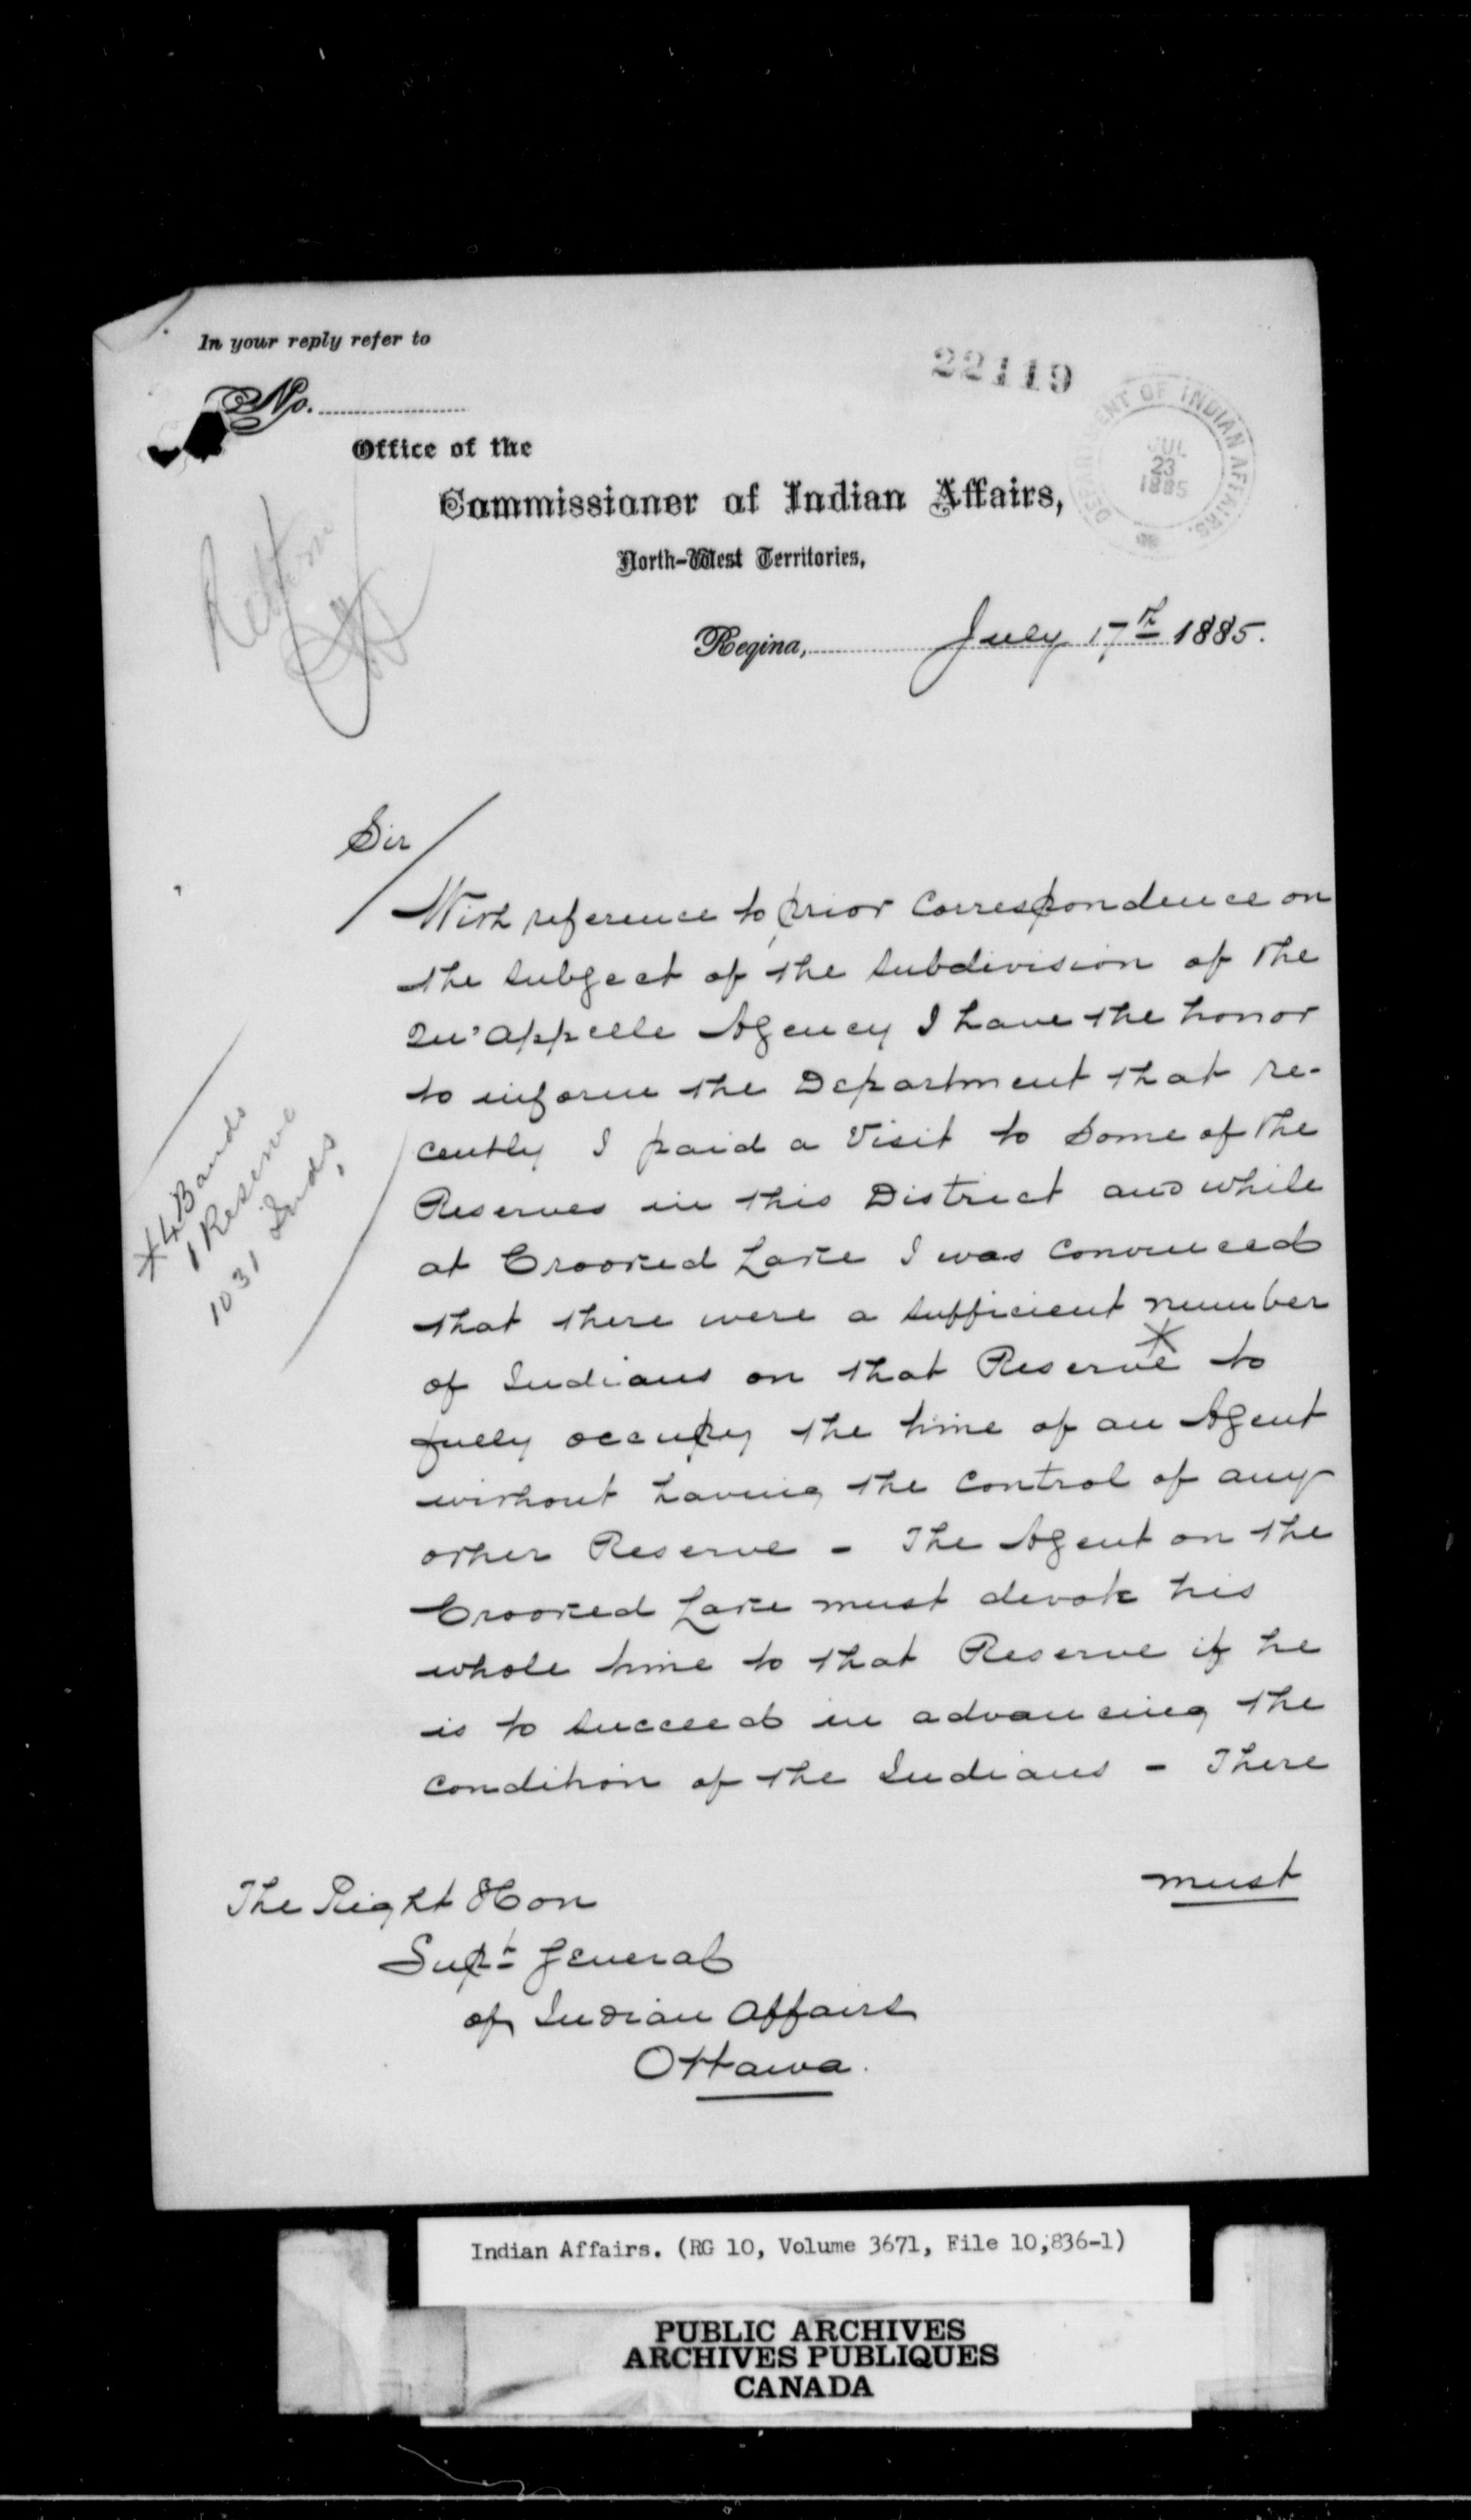 In your reply refer to
No.
22119
DEPARTMENT OF INDIAN AFFAIRS.
JUL
23
1885
Office of the
Commissioner of Indian Affairs,
North-West Territories,
Regina, July 17th 1885.
Sir
With reference to prior correspondence on
the subject of the subdivision of the
Qu'appelle Agency I have the honor
to inform the Department that re-
cently I paid a visit to some of the
Reserves in this District and while
at Crooked Lake I was convinced
that there were a sufficient number
of Indians on that Reserve * to
fully occupy the time of an Agent
without having the control of any
other Reserve - The Agent on the
Crooked Lake must devote his
whole time to that Reserve if he
is to succeed in advancing the
condition of the Indians - There
must
* 4 Bands
1 Reserve
1031 Inds.
The Right Hon
Supt General
of Indian Affairs
Ottawa.
Indian Affairs. (RG 10, Volume 3671, File 10,836-1)
PUBLIC ARCHIVES
ARCHIVES PUBLIQUES
CANADA